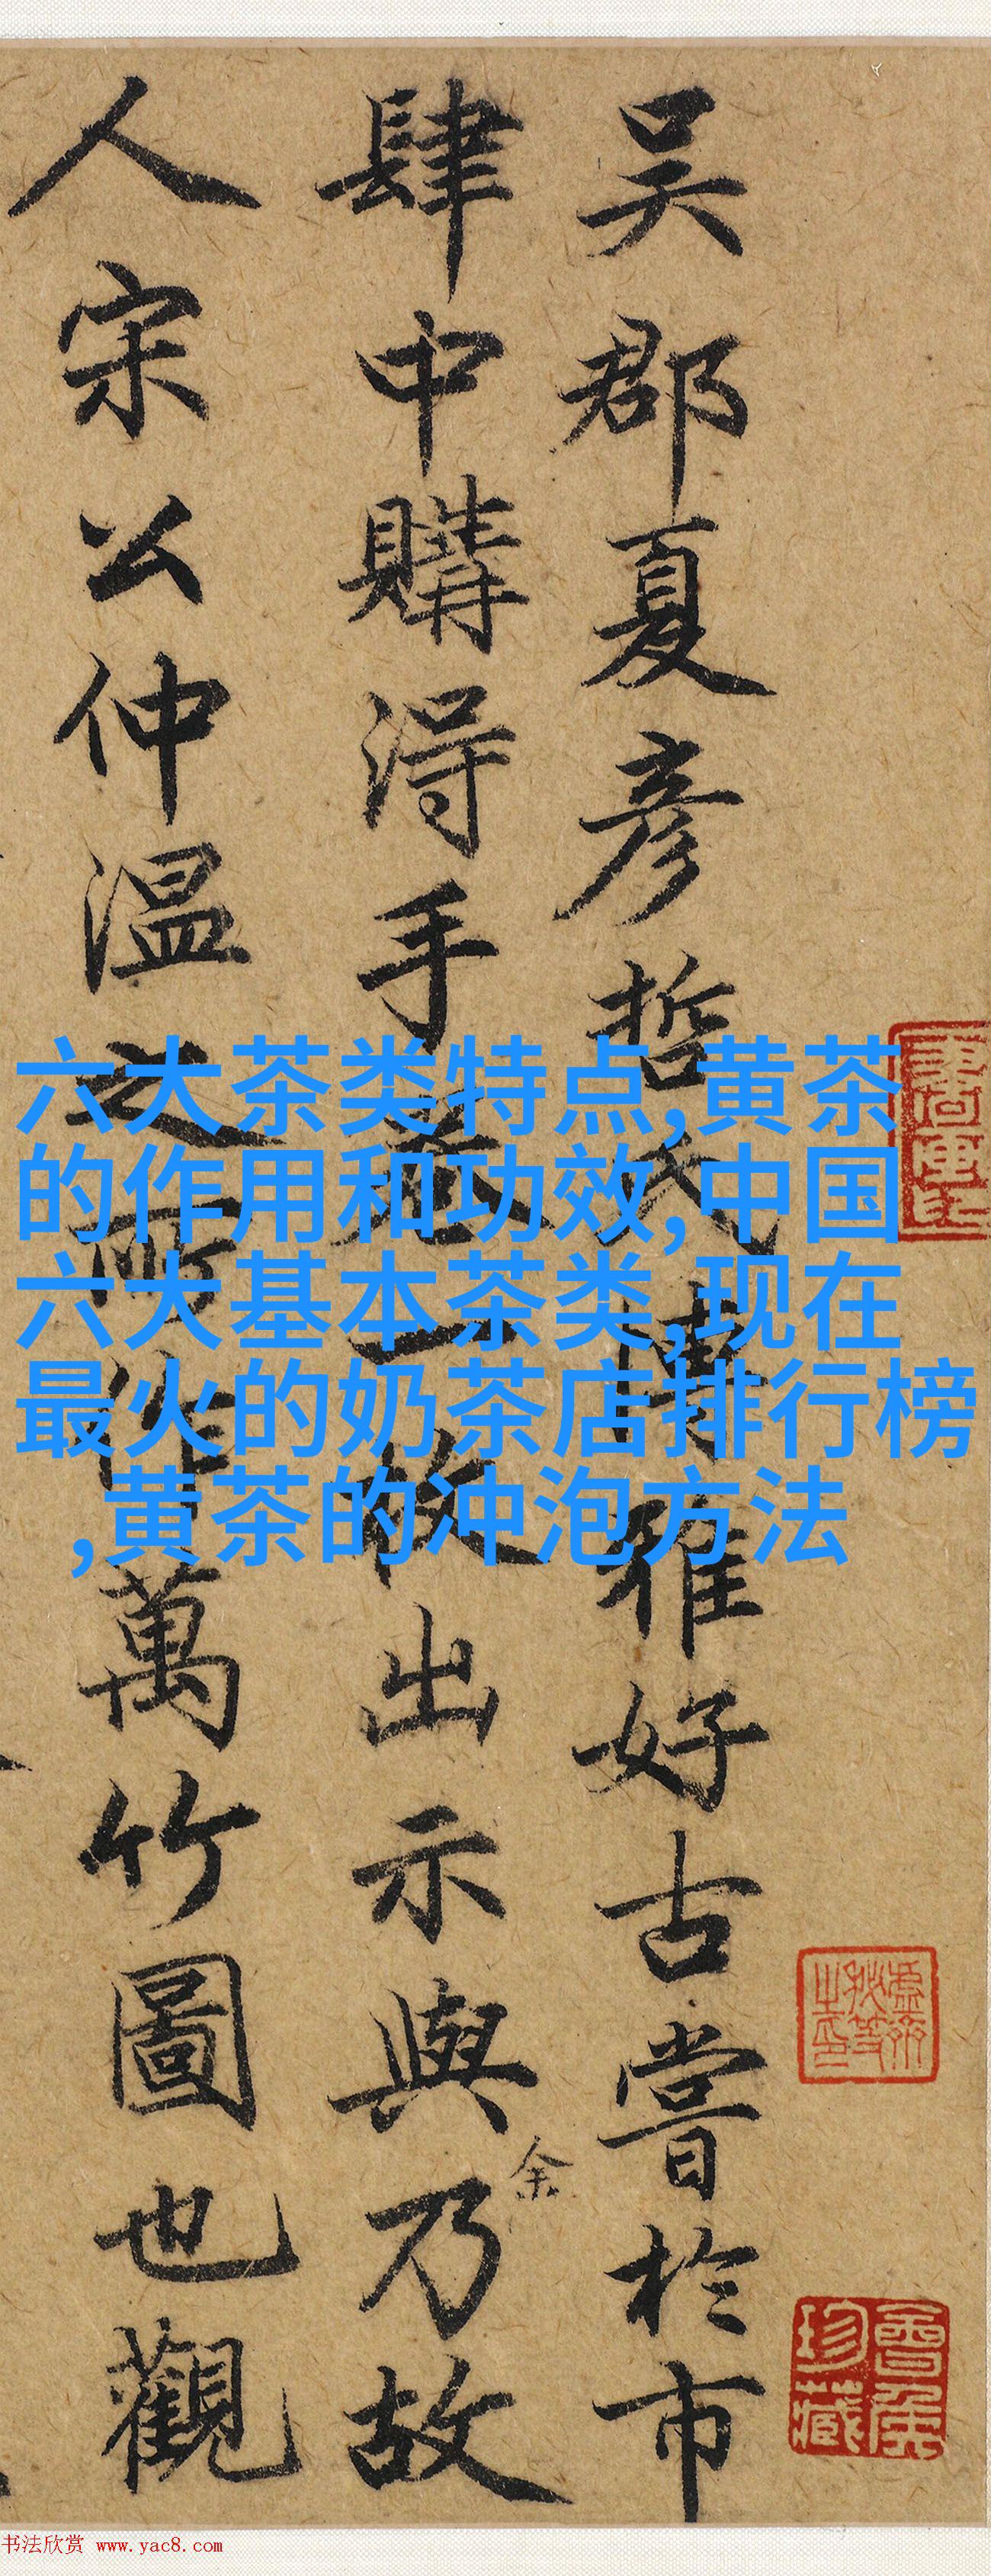 吴郡夏彦哲氏博雅好古嘗於市
肆中購得手卷一故出示與余乃故
人宋公仲温之所作萬竹圖也觀
六大茶类特点,黄茶
的作用和功效,中国
六大基本茶类,现在
最火的奶茶店排行榜
,黄茶的冲泡方法
珍藏
书法欣赏 www.yac8.com